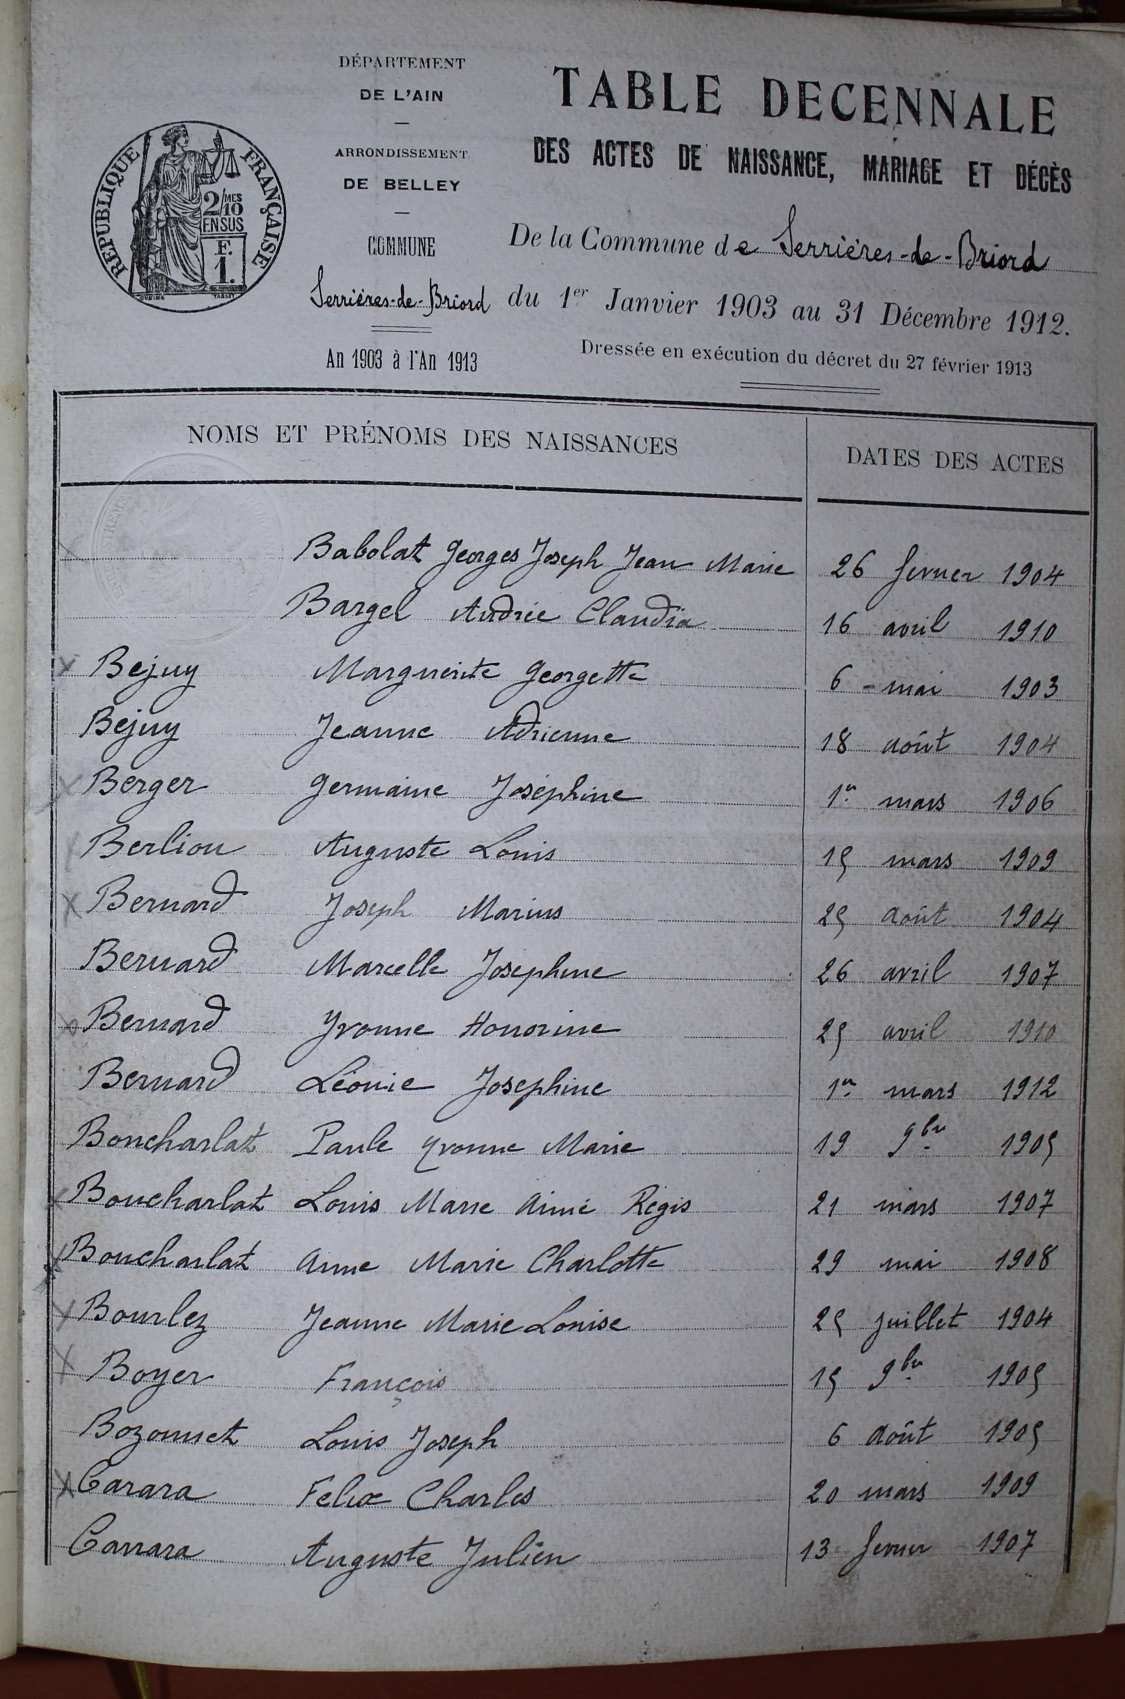 DÉPARTEMENT
DE L'AIN
ARRONDISSEMENT
DE BELLEY
COMMUNE
Serrières-de-Briord
An 1903 à l'An 1913
RÉPUBLIQUE FRANÇAISE
2/MES
10
EN SUS
F.
1.
TABLE DECENNALE
DES ACTES DE NAISSANCE, MARIAGE ET DÉCÈS
De la Commune de Serrières-de-Briord
du 1er Janvier 1903 au 31 Décembre 1912.
Dressée en exécution du décret du 27 février 1913
NOMS ET PRÉNOMS DES NAISSANCES DATES DES ACTES
Babolat Georges Joseph Jean Marie 26 fevrier 1904
Bargel Andrée Claudia 16 avril 1910
Bejuy Marguerite Georgette 6 - mai 1903
Bejuy Jeanne Adrienne 18 août 1904
Berger Germaine Joséphine 1er mars 1906
Berliou Auguste Louis 15 mars 1909
Bernard Joseph Marius 25 août 1904
Bernard Marcelle Josephine 26 avril 1907
Bernard Yvonne Honorine 25 avril 1910
Bernard Léonie Josephine 1er mars 1912
Boucharlat Paule Yvonne Marie 19 9bre 1905
Boucharlat Louis Marie Aimé Régis 21 mars 1907
Boucharlat Anne Marie Charlotte 29 mai 1908
Bourlez Jeanne Marie Louise 25 juillet 1904
Boyer François 15 9bre 1905
Bozonnet Louis Joseph 6 août 1905
Carara Felix Charles 20 mars 1909
Carrara Auguste Julien 13 fevrier 1907